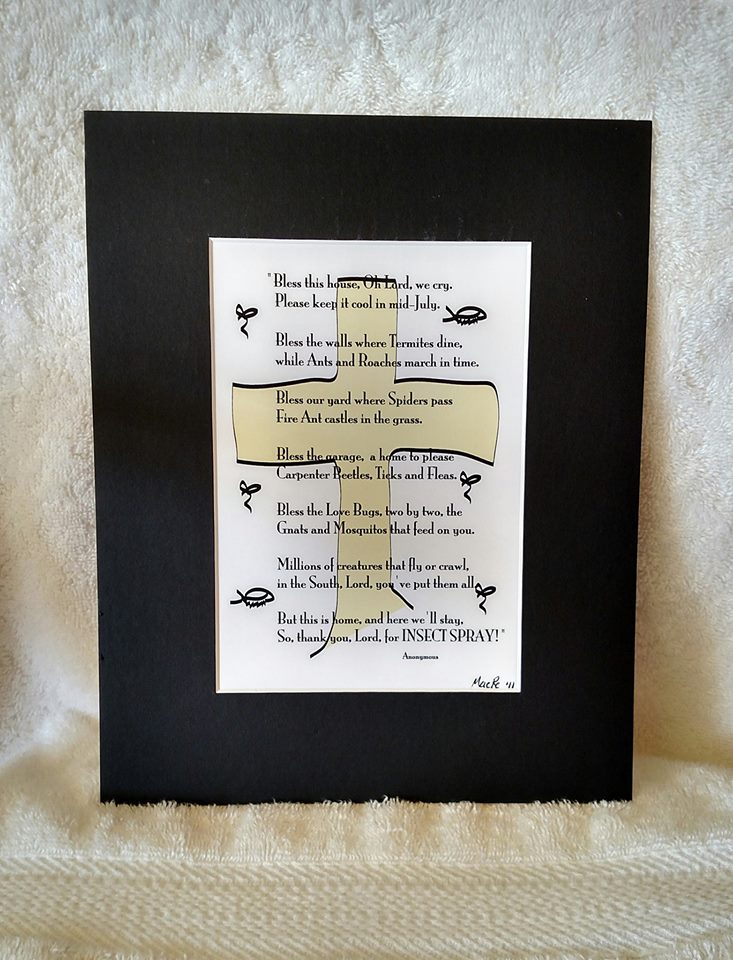 "Bless this house, Oh Lord, we cry.
Please keep it cool in mid-July.
Bless the walls where Termites dine,
while Ants and Roaches march in time.
Bless our yard where Spiders pass
Fire Ant castles in the grass.
Bless the garage, a home to please
Carpenter Beetles, Ticks and Fleas.
Bless the Love Bugs, two by two, the
Gnats and Mosquitos that feed on you.
Millions of creatures that fly or crawl,
in the South, Lord, you've put them all
But this is home, and here we'll stay,
So, thank you, Lord, for INSECT SPRAY!"
Anonymous
'11